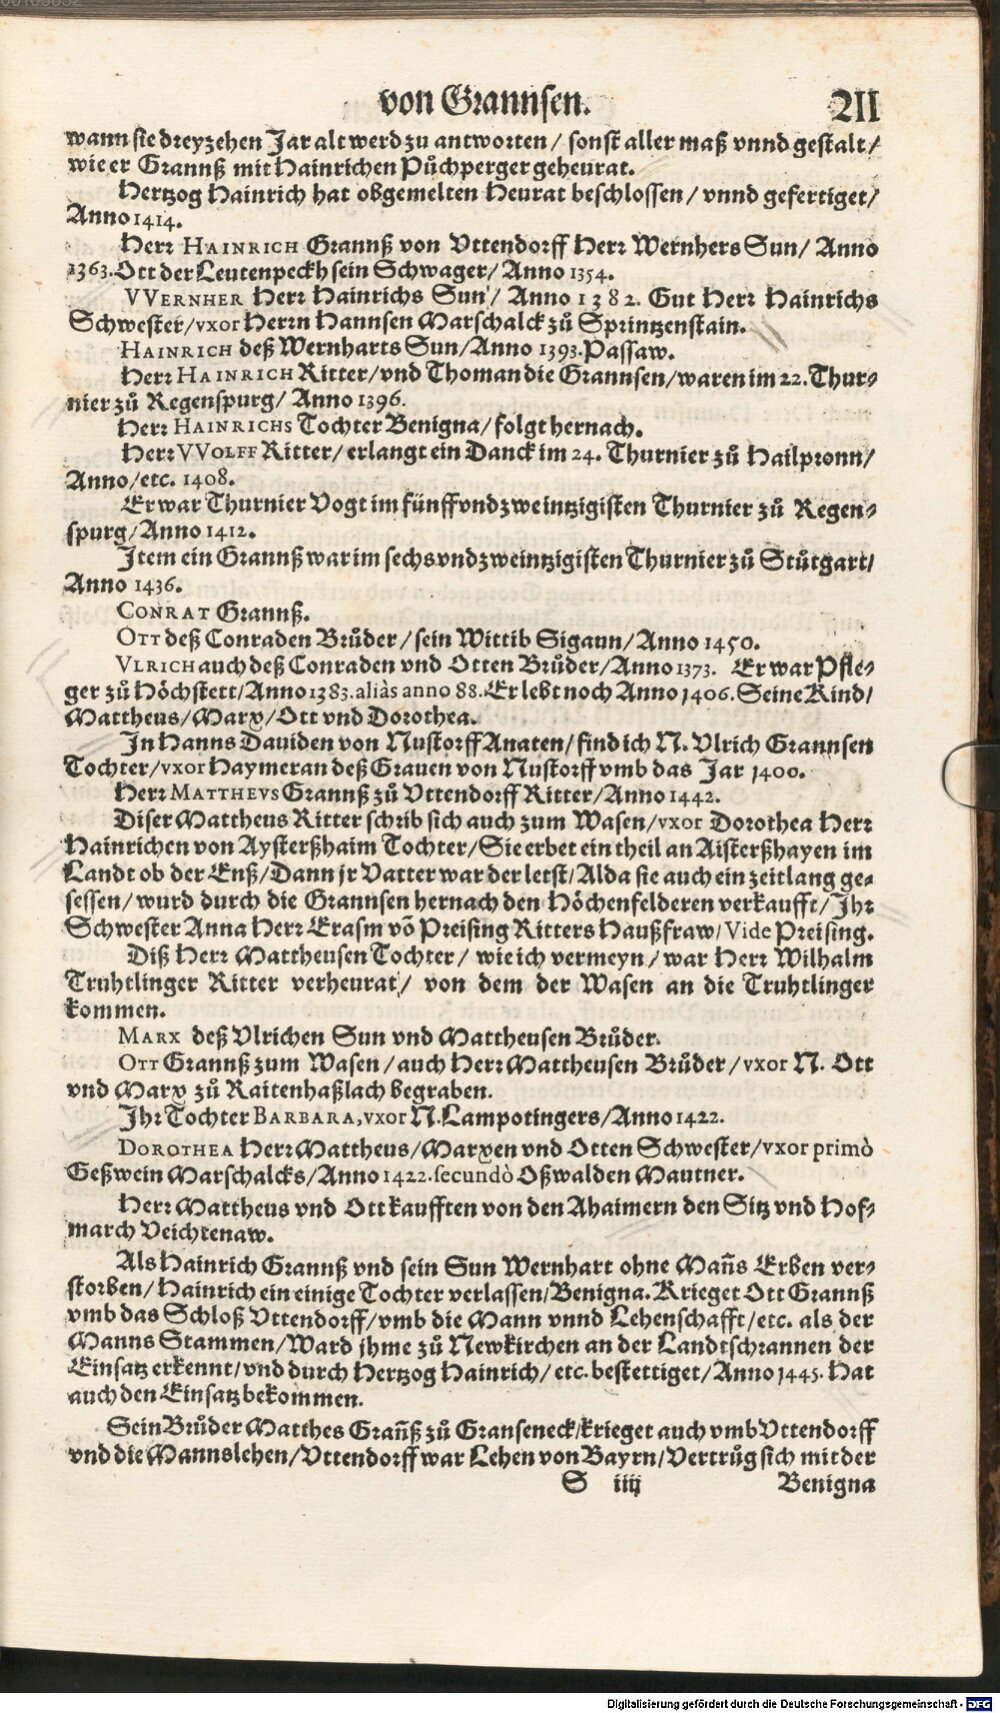 von Grannsen. 211
wann sie dreyzehen Jar alt werd zu antworten / sonst aller maß vnnd gestalt /
wie er Grannß mit Hainrichen Půchperger geheurat.
Hertzog Hainrich hat obgemelten Heurat beschlossen / vnnd gefertiget /
Anno 1414.
Herr HAINRICH Grannß von Vttendorff Herr Wernhers Sun / Anno
1363. Ott der Leutenpeckh sein Schwager / Anno 1354.
VVERNHER Herr Hainrichs Sun / Anno 1382. Gut Herr Hainrichs
Schwester / vxor Herrn Hannsen Marschalck zů Sprintzenstain.
HAINRICH deß Wernharts Sun / Anno 1393. Passaw.
Herr HAINRICH Ritter / vnd Thoman die Grannsen / waren im 22. Thur-
nier zů Regenspurg / Anno 1396.
Herr HAINRICHS Tochter Benigna / folgt hernach.
Herr VVOLFF Ritter / erlangt ein Danck im 24. Thurnier zů Hailpronn /
Anno / etc. 1408.
Er war Thurnier Vogt im fünff vnd zweintzigisten Thurnier zů Regen-
spurg / Anno 1412.
Item ein Grannß war im sechs vnd zweintzigisten Thurnier zů Stůtgart /
Anno 1436.
CONRAT Grannß.
OTT deß Conraden Brůder / sein Wittib Sigaun / Anno 1450.
VLRICH auch deß Conraden vnd Otten Brůder / Anno 1373. Er war Pfle-
ger zů Höchstett / Anno 1383. aliàs anno 88. Er lebt noch Anno 1406. Seine Kind /
Mattheus / Marx / Ott vnd Dorothea.
In Hanns Dauiden von Nustorff Anaten / find ich N. Vlrich Grannsen
Tochter / vxor Haymeran deß Grauen von Nustorff vmb das Jar 1400.
Herr MATTHEVS Grannß zů Vttendorff Ritter / Anno 1442.
Diser Mattheus Ritter schrib sich auch zum Wasen / vxor Dorothea Herr
Hainrichen von Aysterßhaim Tochter / Sie erbet ein theil an Aisterßhayen im
Landt ob der Enß / Dann jr Vatter war der letst / Alda sie auch ein zeitlang ge-
sessen / wurd durch die Grannsen hernach den Höchenfelderen verkaufft / Ihr
Schwester Anna Herr Erasm võ Preising Ritters Haußfraw / Vide Preising.
Diß Herr Mattheusen Tochter / wie ich vermeyn / war Herr Wilhalm
Truhtlinger Ritter verheurat / von dem der Wasen an die Truhtlinger
kommen.
MARX deß Vlrichen Sun vnd Mattheusen Brůder.
OTT Grannß zum Wasen / auch Herr Mattheusen Brůder / vxor N. Ott
vnd Marx zů Raitenhaßlach begraben.
Ihr Tochter BARBARA, vxor N. Lampotingers / Anno 1422.
DOROTHEA Herr Mattheus / Marxen vnd Otten Schwester / vxor primò
Geßwein Marschalcks / Anno 1422. secundò Oßwalden Mautner.
Herr Mattheus vnd Ott kaufften von den Ahaimern den Sitz vnd Hof-
march Veichtenaw.
Als Hainrich Grannß vnd sein Sun Wernhart ohne Mañs Erben ver-
storben / Hainrich ein einige Tochter verlassen / Benigna. Krieget Ott Grannß
vmb das Schloß Vttendorff / vmb die Mann vnnd Lehenschafft / etc. als der
Manns Stammen / Ward jhme zů Newkirchen an der Landtschrannen der
Einsatz erkennt / vnd durch Hertzog Hainrich / etc. bestettiget / Anno 1445. Hat
auch den Einsatz bekommen.
Sein Brůder Matthes Grañß zů Granseneck / krieget auch vmb Vttendorff
vnd die Mannslehen / Vttendorff war Lehen von Bayrn / Vertrůg sich mit der
S iiij Benigna
Digitalisierung gefördert durch die Deutsche Forschungsgemeinschaft - DFG